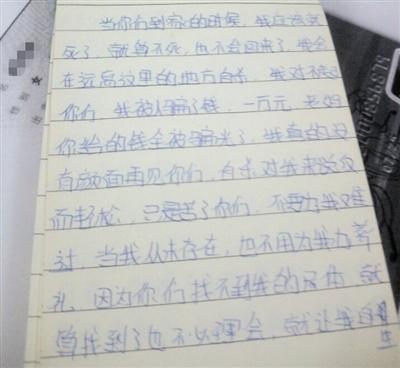 当你们到家的时候，我应该就
死了，就算不死，也不会回来了，我会
在远离这里的地方自杀，我对不起
你们，我被人骗了钱，一万元，老妈
你给的钱全被骗光了，我真的没
有颜面再见你们，自杀对我来说反
而轻松，只是苦了你们，不要为我难
过，当我从未存在，也不用为我办葬
礼，因为你们找不到我的尸体，就
算找到了也不必理会，就让我自
生